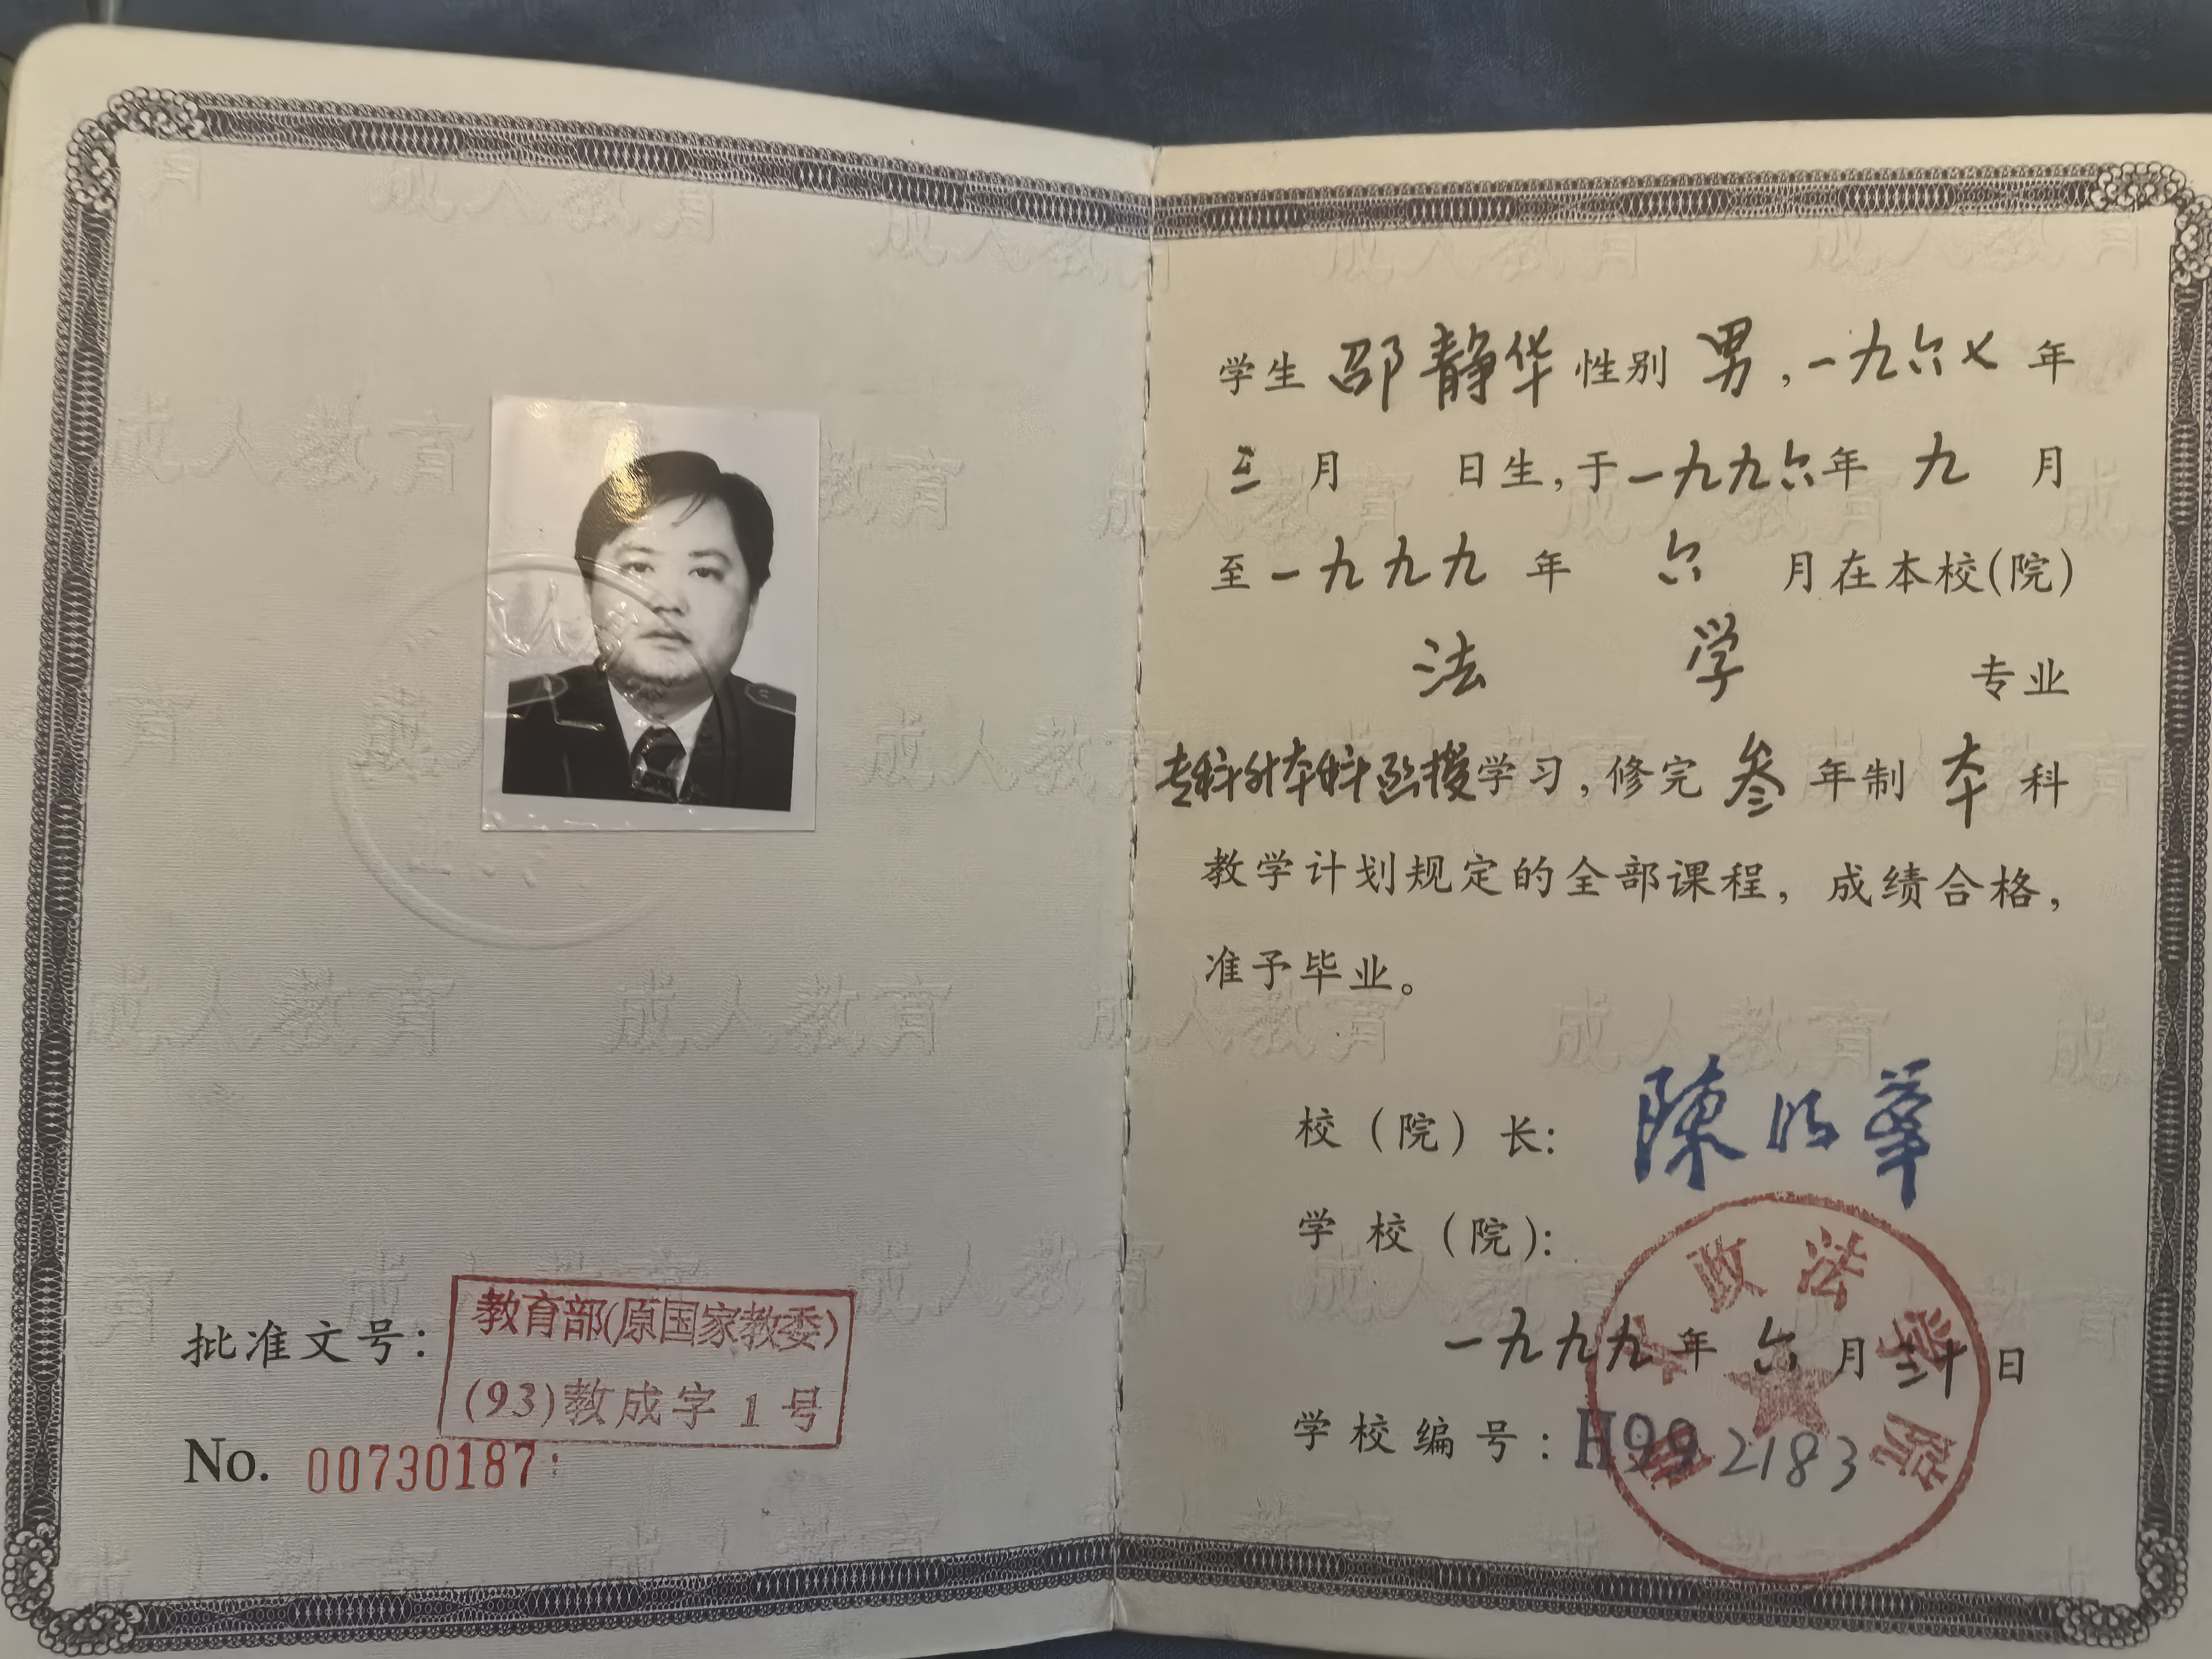 批准文号:
教育部(原国家教委)
(93)教成字 1 号
No. 00730187
学生 邵静华 性别 男,一九六七 年
三 月 日生,于一九九六年 九 月
至一九九九 年 六 月在本校(院)
法 学 专业
专科升本科函授学习,修完 叁 年制 本 科
教学计划规定的全部课程,成绩合格,
准予毕业。
校(院)长:
学 校(院):
政法学院
一九九九年 六 月三十日
学校编号:H992183
成人教育